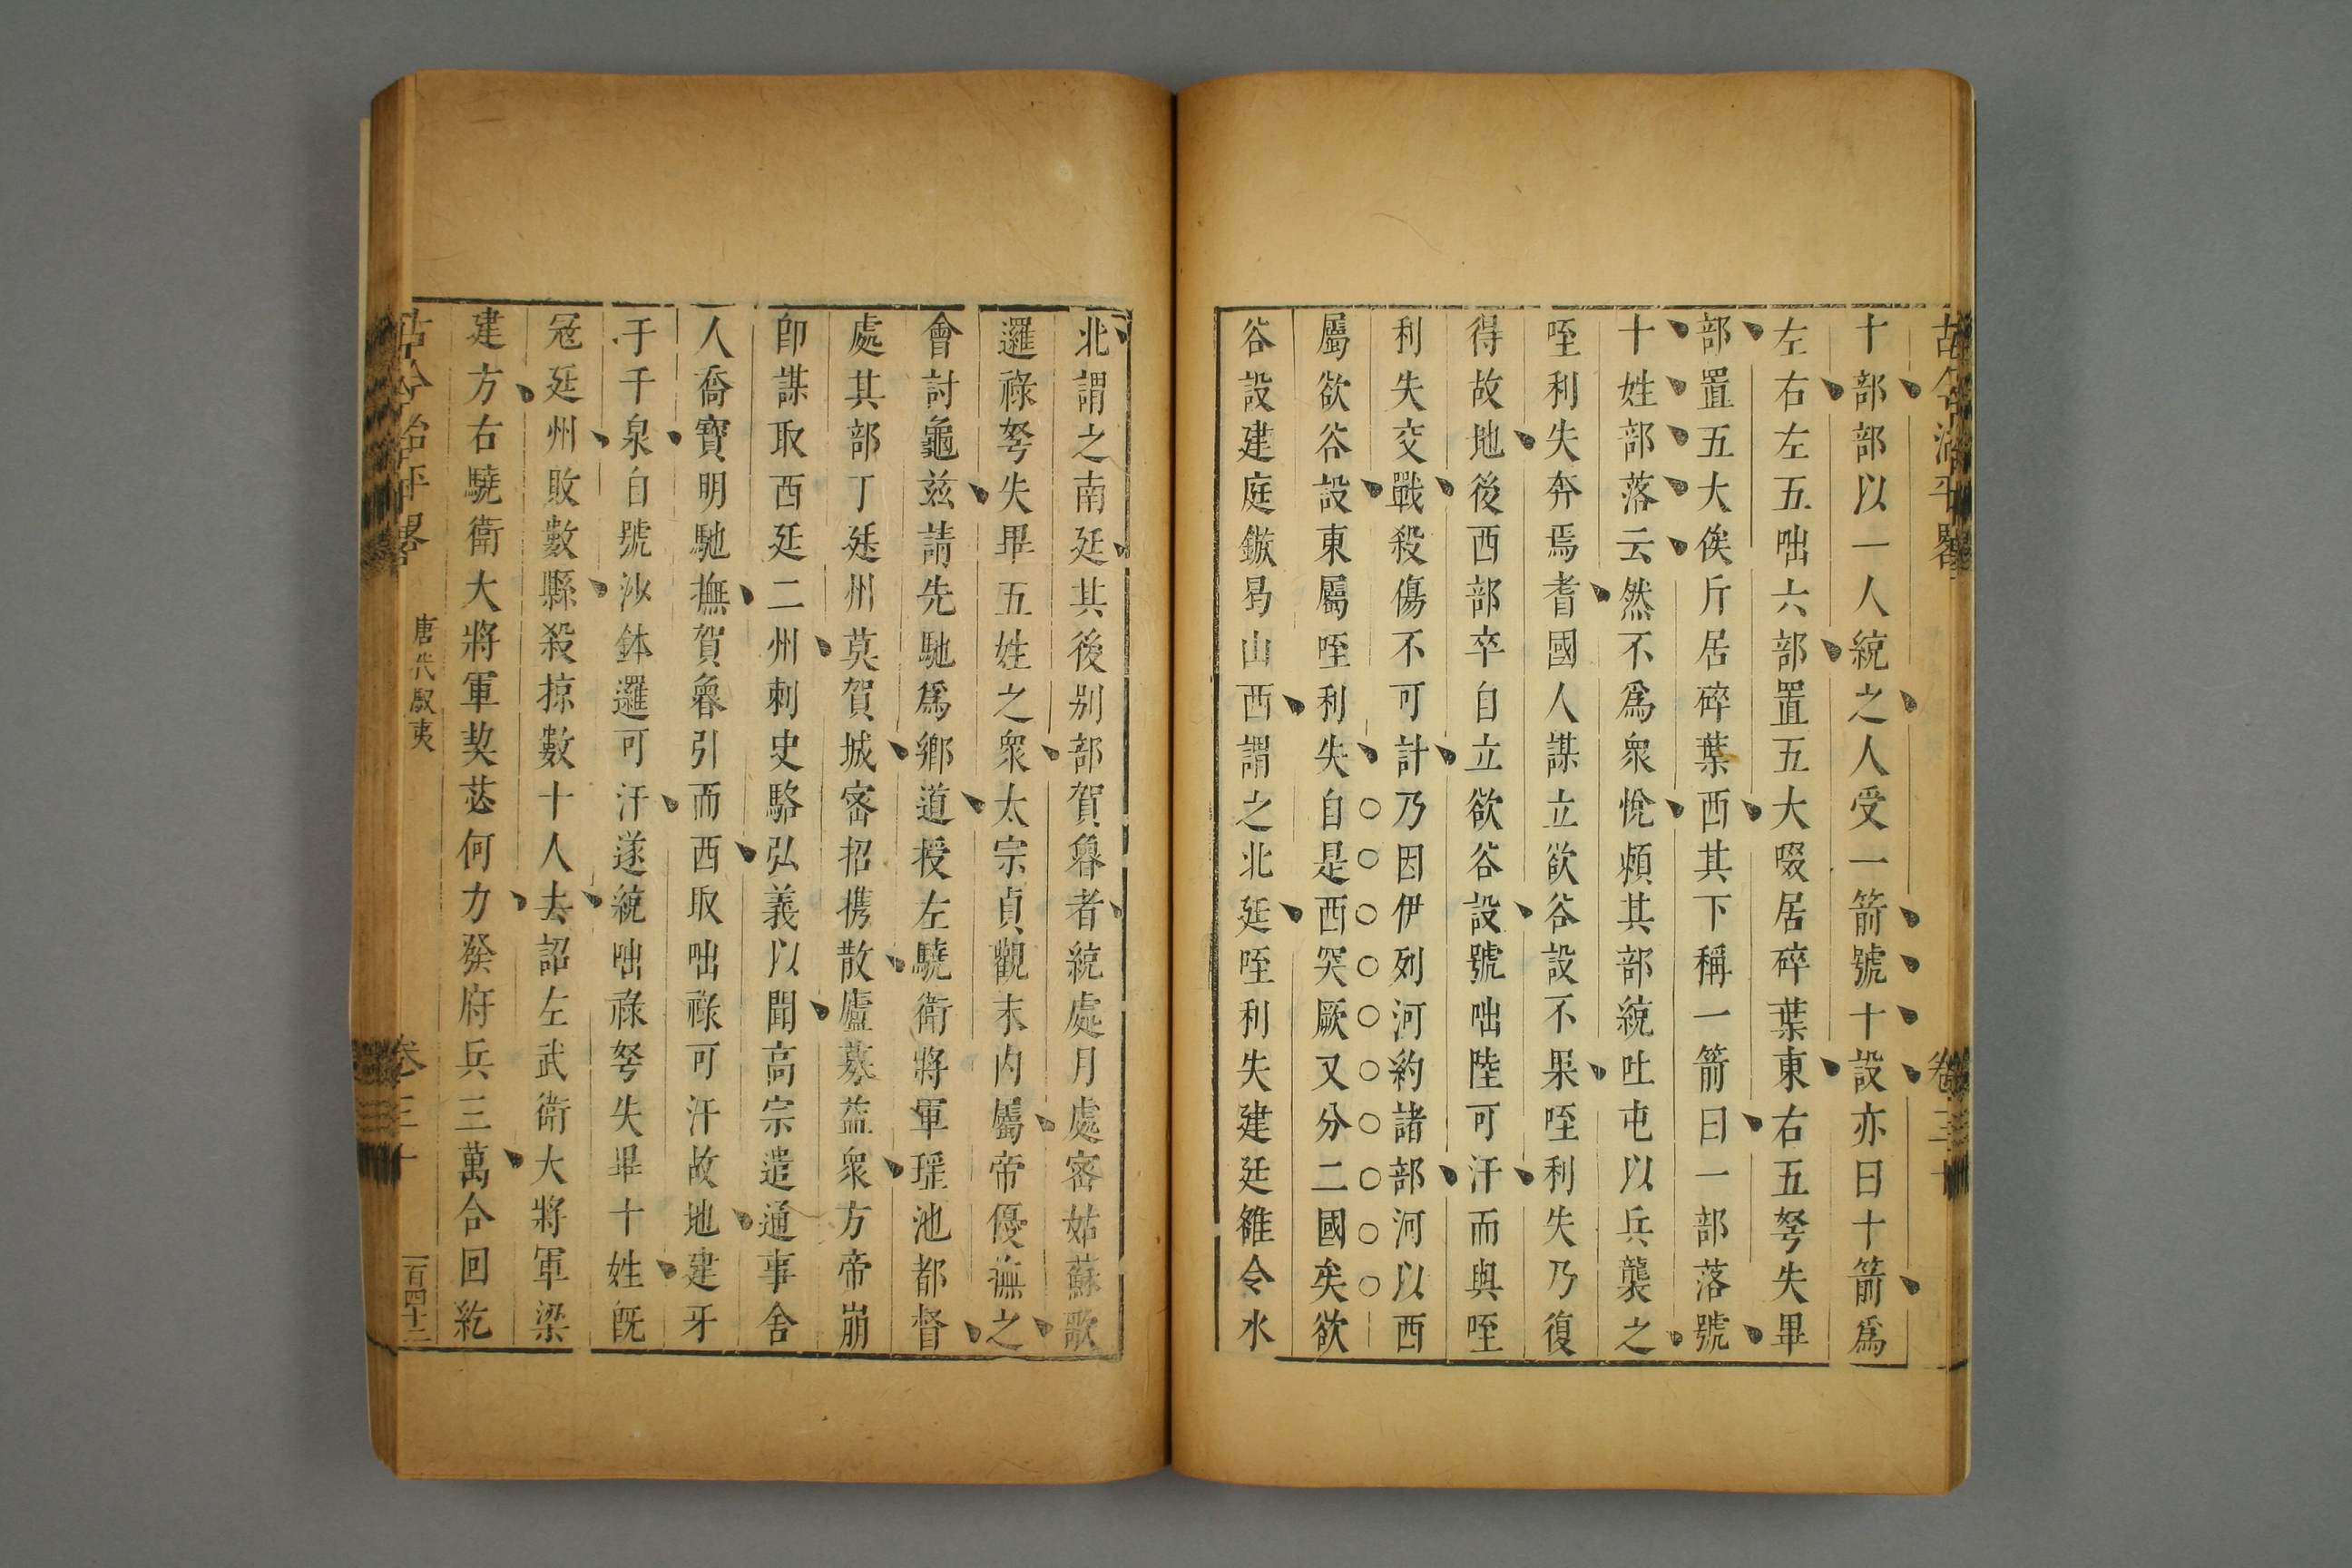 古今治平畧
卷三十
十部部以一人統之人受一箭號十設亦曰十箭爲
左右左五咄六部置五大啜居碎葉東右五弩失畢
部置五大俟斤居碎葉西其下稱一箭曰一部落號
十姓部落云然不爲衆悅頼其部統吐屯以兵襲之
咥利失奔焉耆國人謀立欲谷設不果咥利失乃復
得故地後西部卒自立欲谷設號咄陸可汗而與咥
利失交戰殺傷不可計乃因伊列河約諸部河以西
屬欲谷設東屬咥利失自是西突厥又分二國矣欲
谷設建庭鏃曷山西謂之北廷咥利失建廷雒令水
北謂之南廷其後別部賀魯者統處月處密姑蘇歌
邏祿弩失畢五姓之衆太宗貞觀末内屬帝優撫之
會討龜玆請先馳爲鄉道授左驍衛將軍瑶池都督
處其部丁廷州莫賀城密招携散廬幕益衆方帝崩
卽謀取西廷二州刺史駱弘義以聞高宗遣通事舍
人喬寶明馳撫賀魯引而西取咄祿可汗故地建牙
于千泉自號沙鉢邏可汗遂統咄祿弩失畢十姓旣
冦廷州敗數縣殺掠數十人去詔左武衛大將軍梁
建方右驍衛大將軍契苾何力發府兵三萬合回紇
古今治平畧
唐代馭夷
卷三十
一百四十二